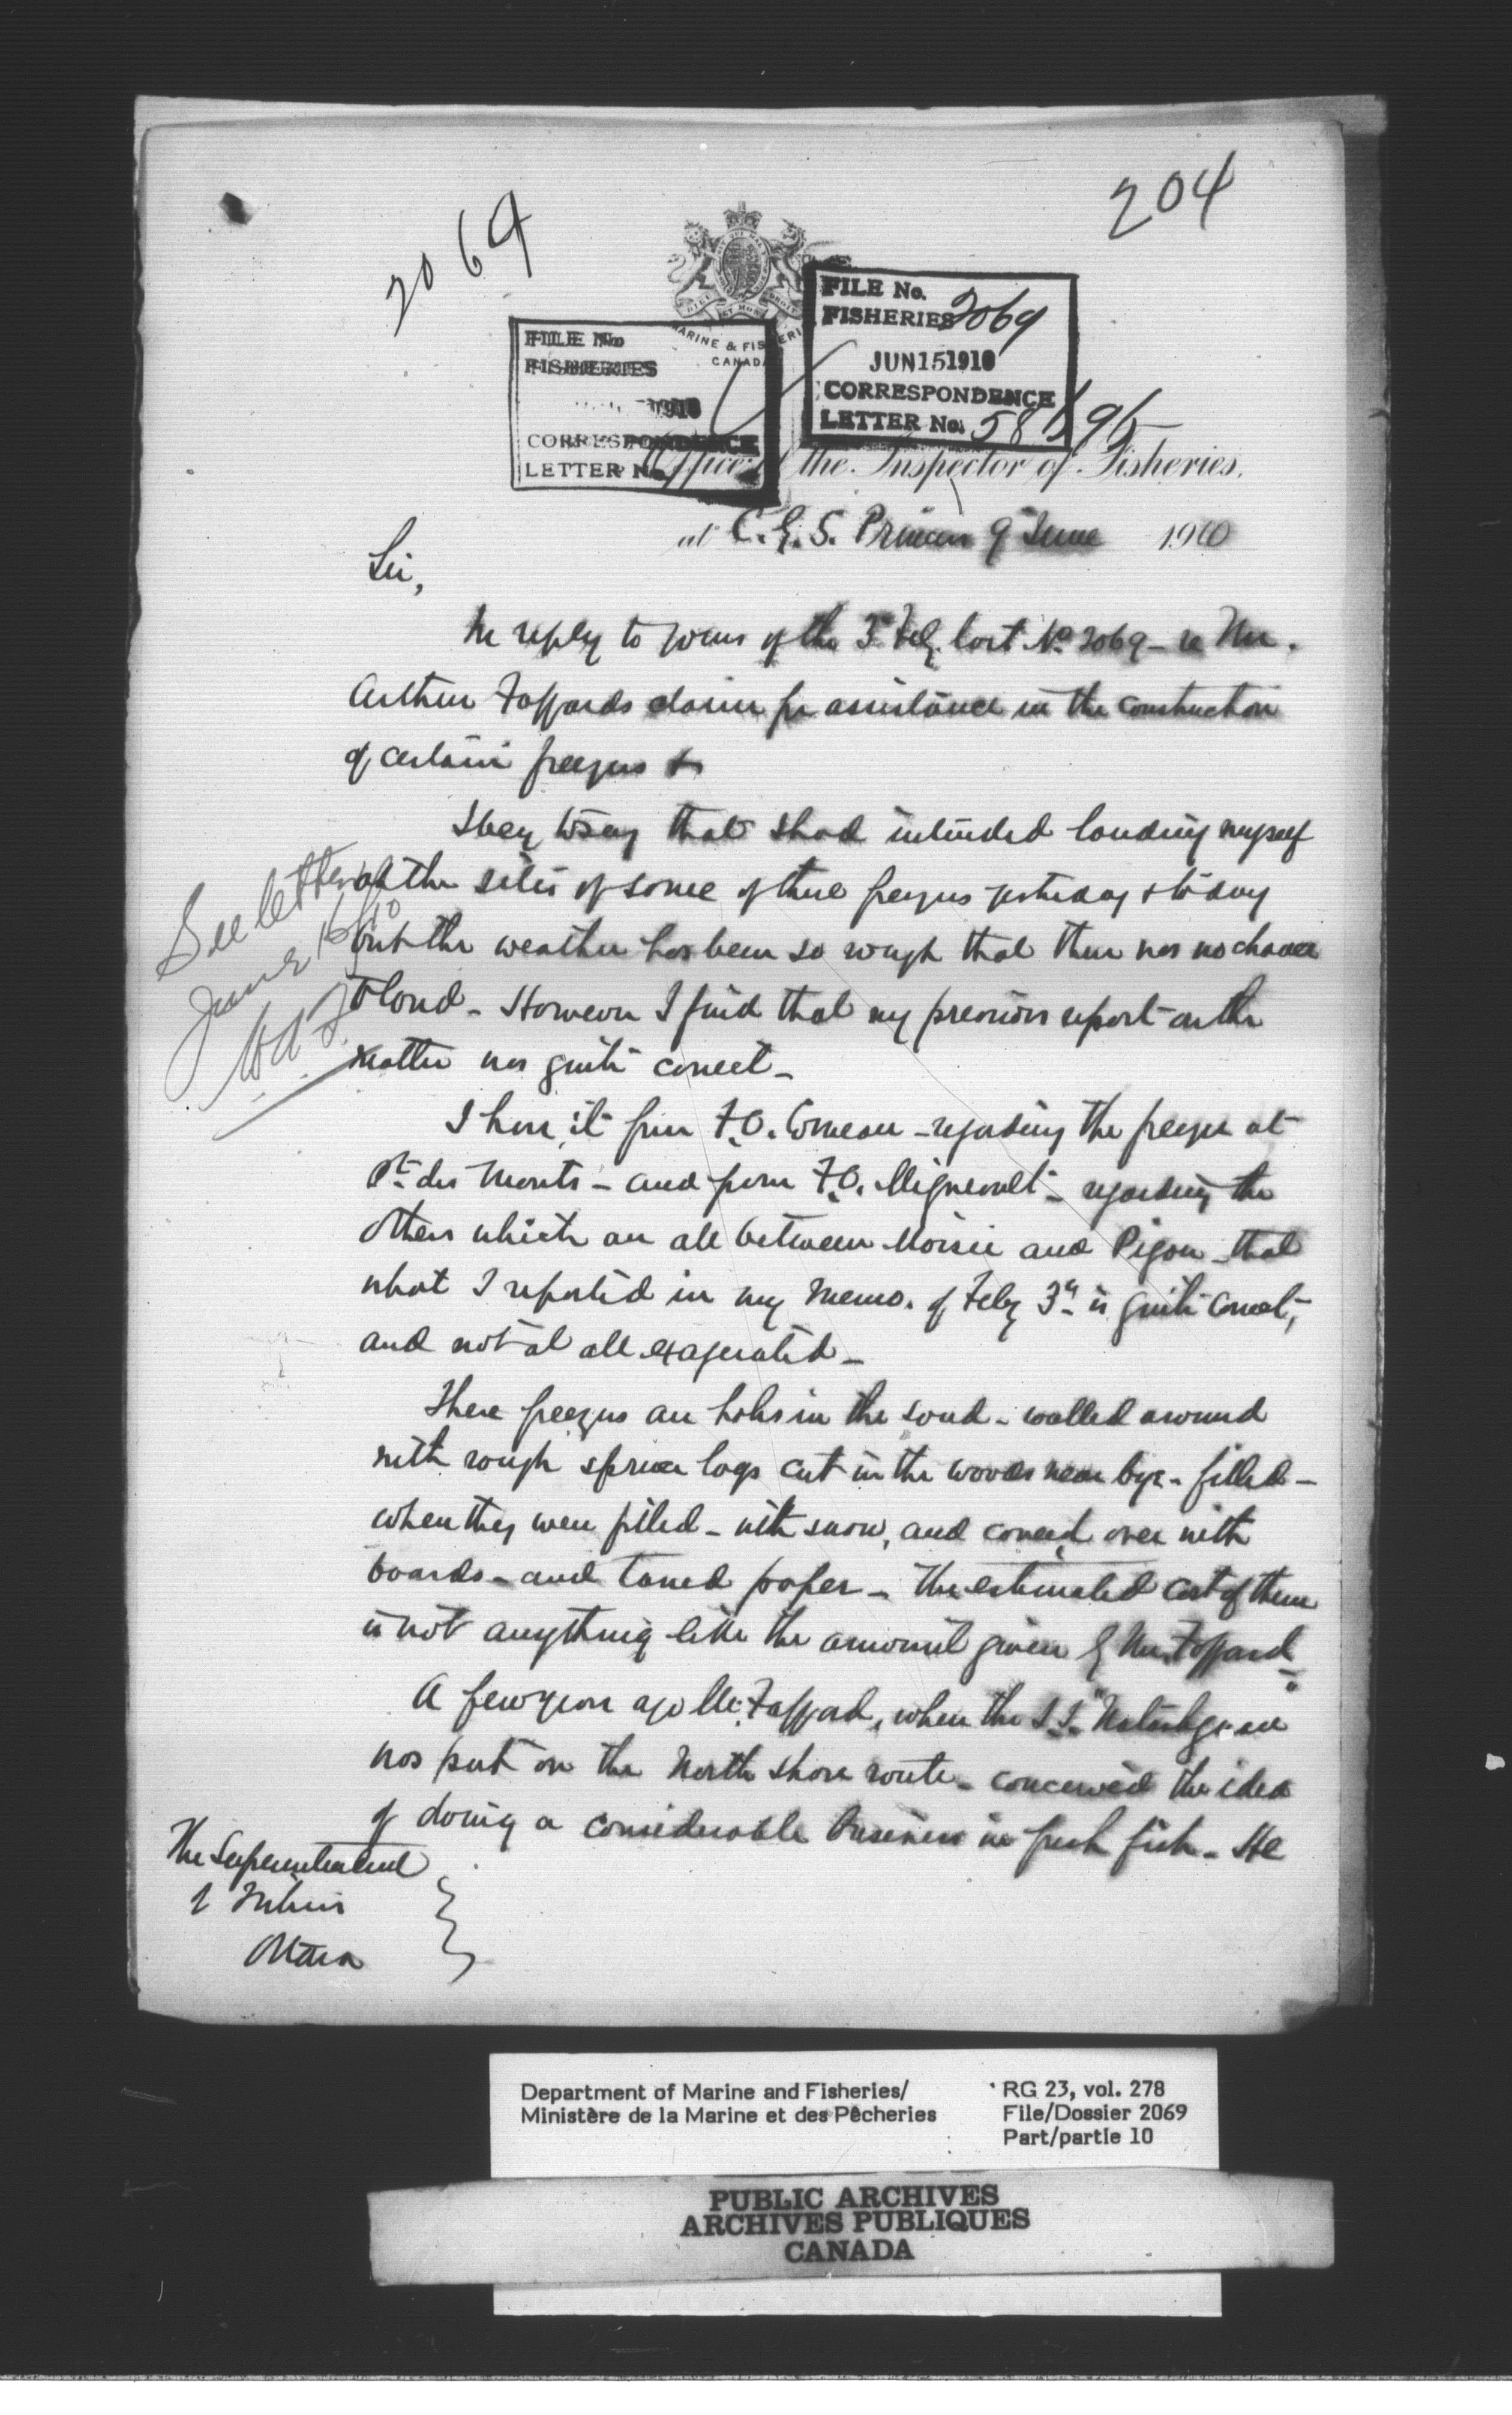 204
2069
MARINE & FISHERIES
CANADA
FILE No.
FISHERIES 2069
JUN 15 1910
CORRESPONDENCE
LETTER No. 58595
FILE No
FISHERIES
1910
CORRESPONDENCE
LETTER No.
Office of the Inspector of Fisheries.
at C.G.S. Princess 9 June 1910
Sir,
In reply to yours of the 3rd Feby. last No 2069 - re Mr.
Arthur Foffards claim for assistance in the construction
of certain freezers &
I beg to say that I had intended landing myself
at the sites of some of these freezers yesterday & to day
but the weather has been so rough that there was no chance
to land - However I find that my previous report on the
matter was quite correct -
See letter of
June 16/10
I have it from F.O. Comeau - regarding the freezer at
Pt des Monts - and from F.O. Migneault - regarding the
others which are all between Moisie and Pigou - that
what I reported in my memo. of Feby 3rd is quite correct,
and not at all exagerated -
These freezers are holes in the sand - walled around
with rough spruce logs cut in the woods near bye - filled -
when they were filled - with snow, and covered over with
boards - and tarred paper - The estimated cost of them
is not anything like the amount given by Mr. Foffard -
A few years ago Mr. Foffard, when the S.S. "Natashquan"
was put on the North Shore route - conceived the idea
of doing a considerable business in fresh fish - He
The Superintendent
of Fisheries
Ottawa
Department of Marine and Fisheries/
Ministère de la Marine et des Pêcheries
RG 23, vol. 278
File/Dossier 2069
Part/partie 10
PUBLIC ARCHIVES
ARCHIVES PUBLIQUES
CANADA